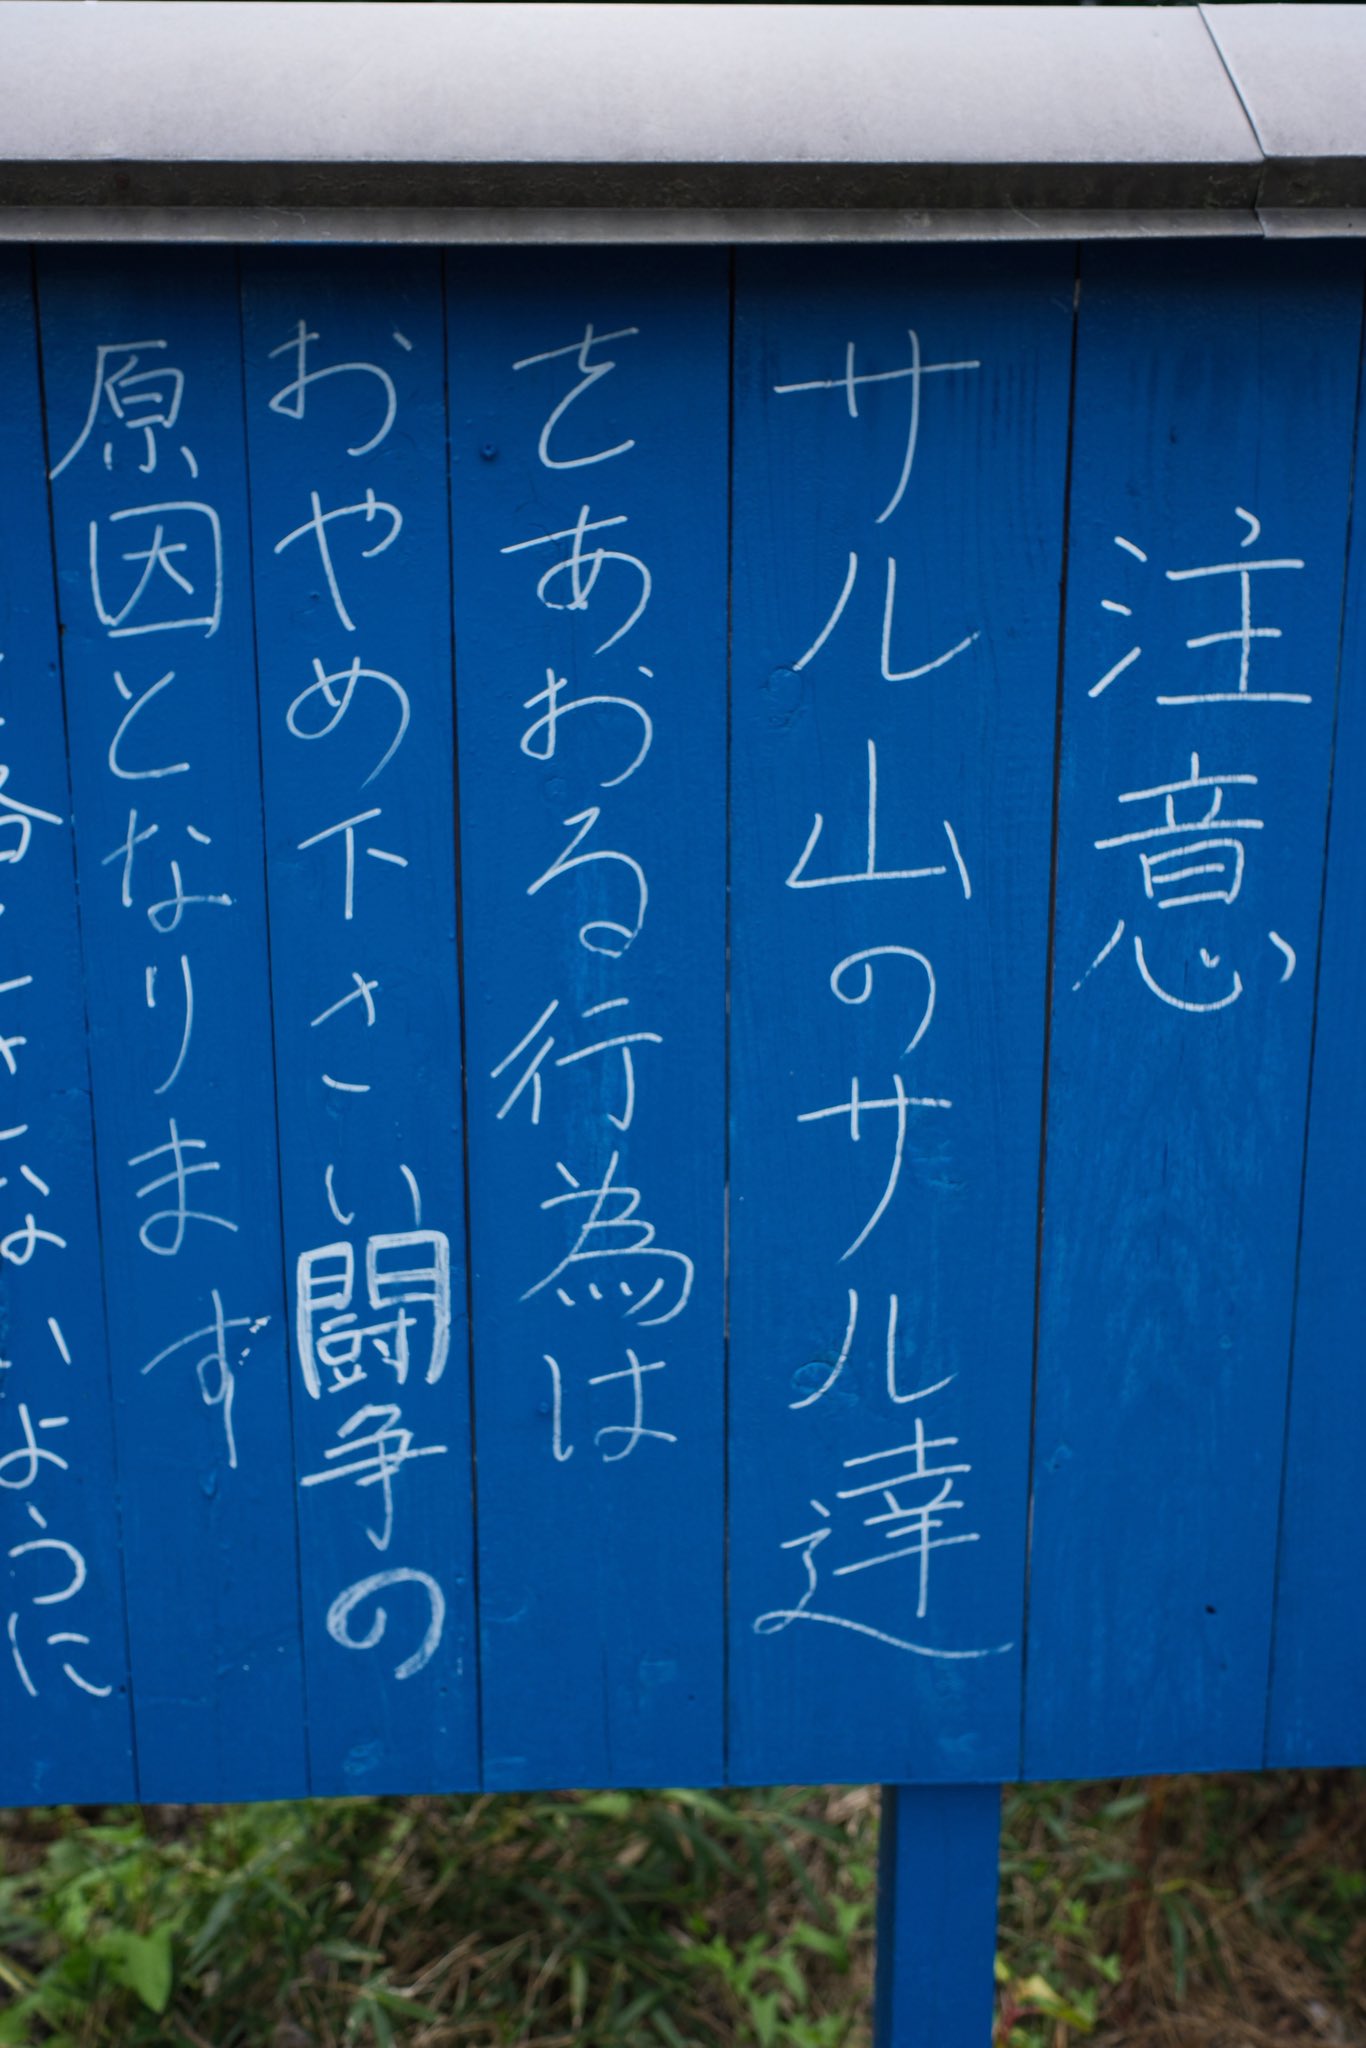 注意
サル山のサル達
をあおる行為は
おやめ下さい闘争の
原因となります
ないように